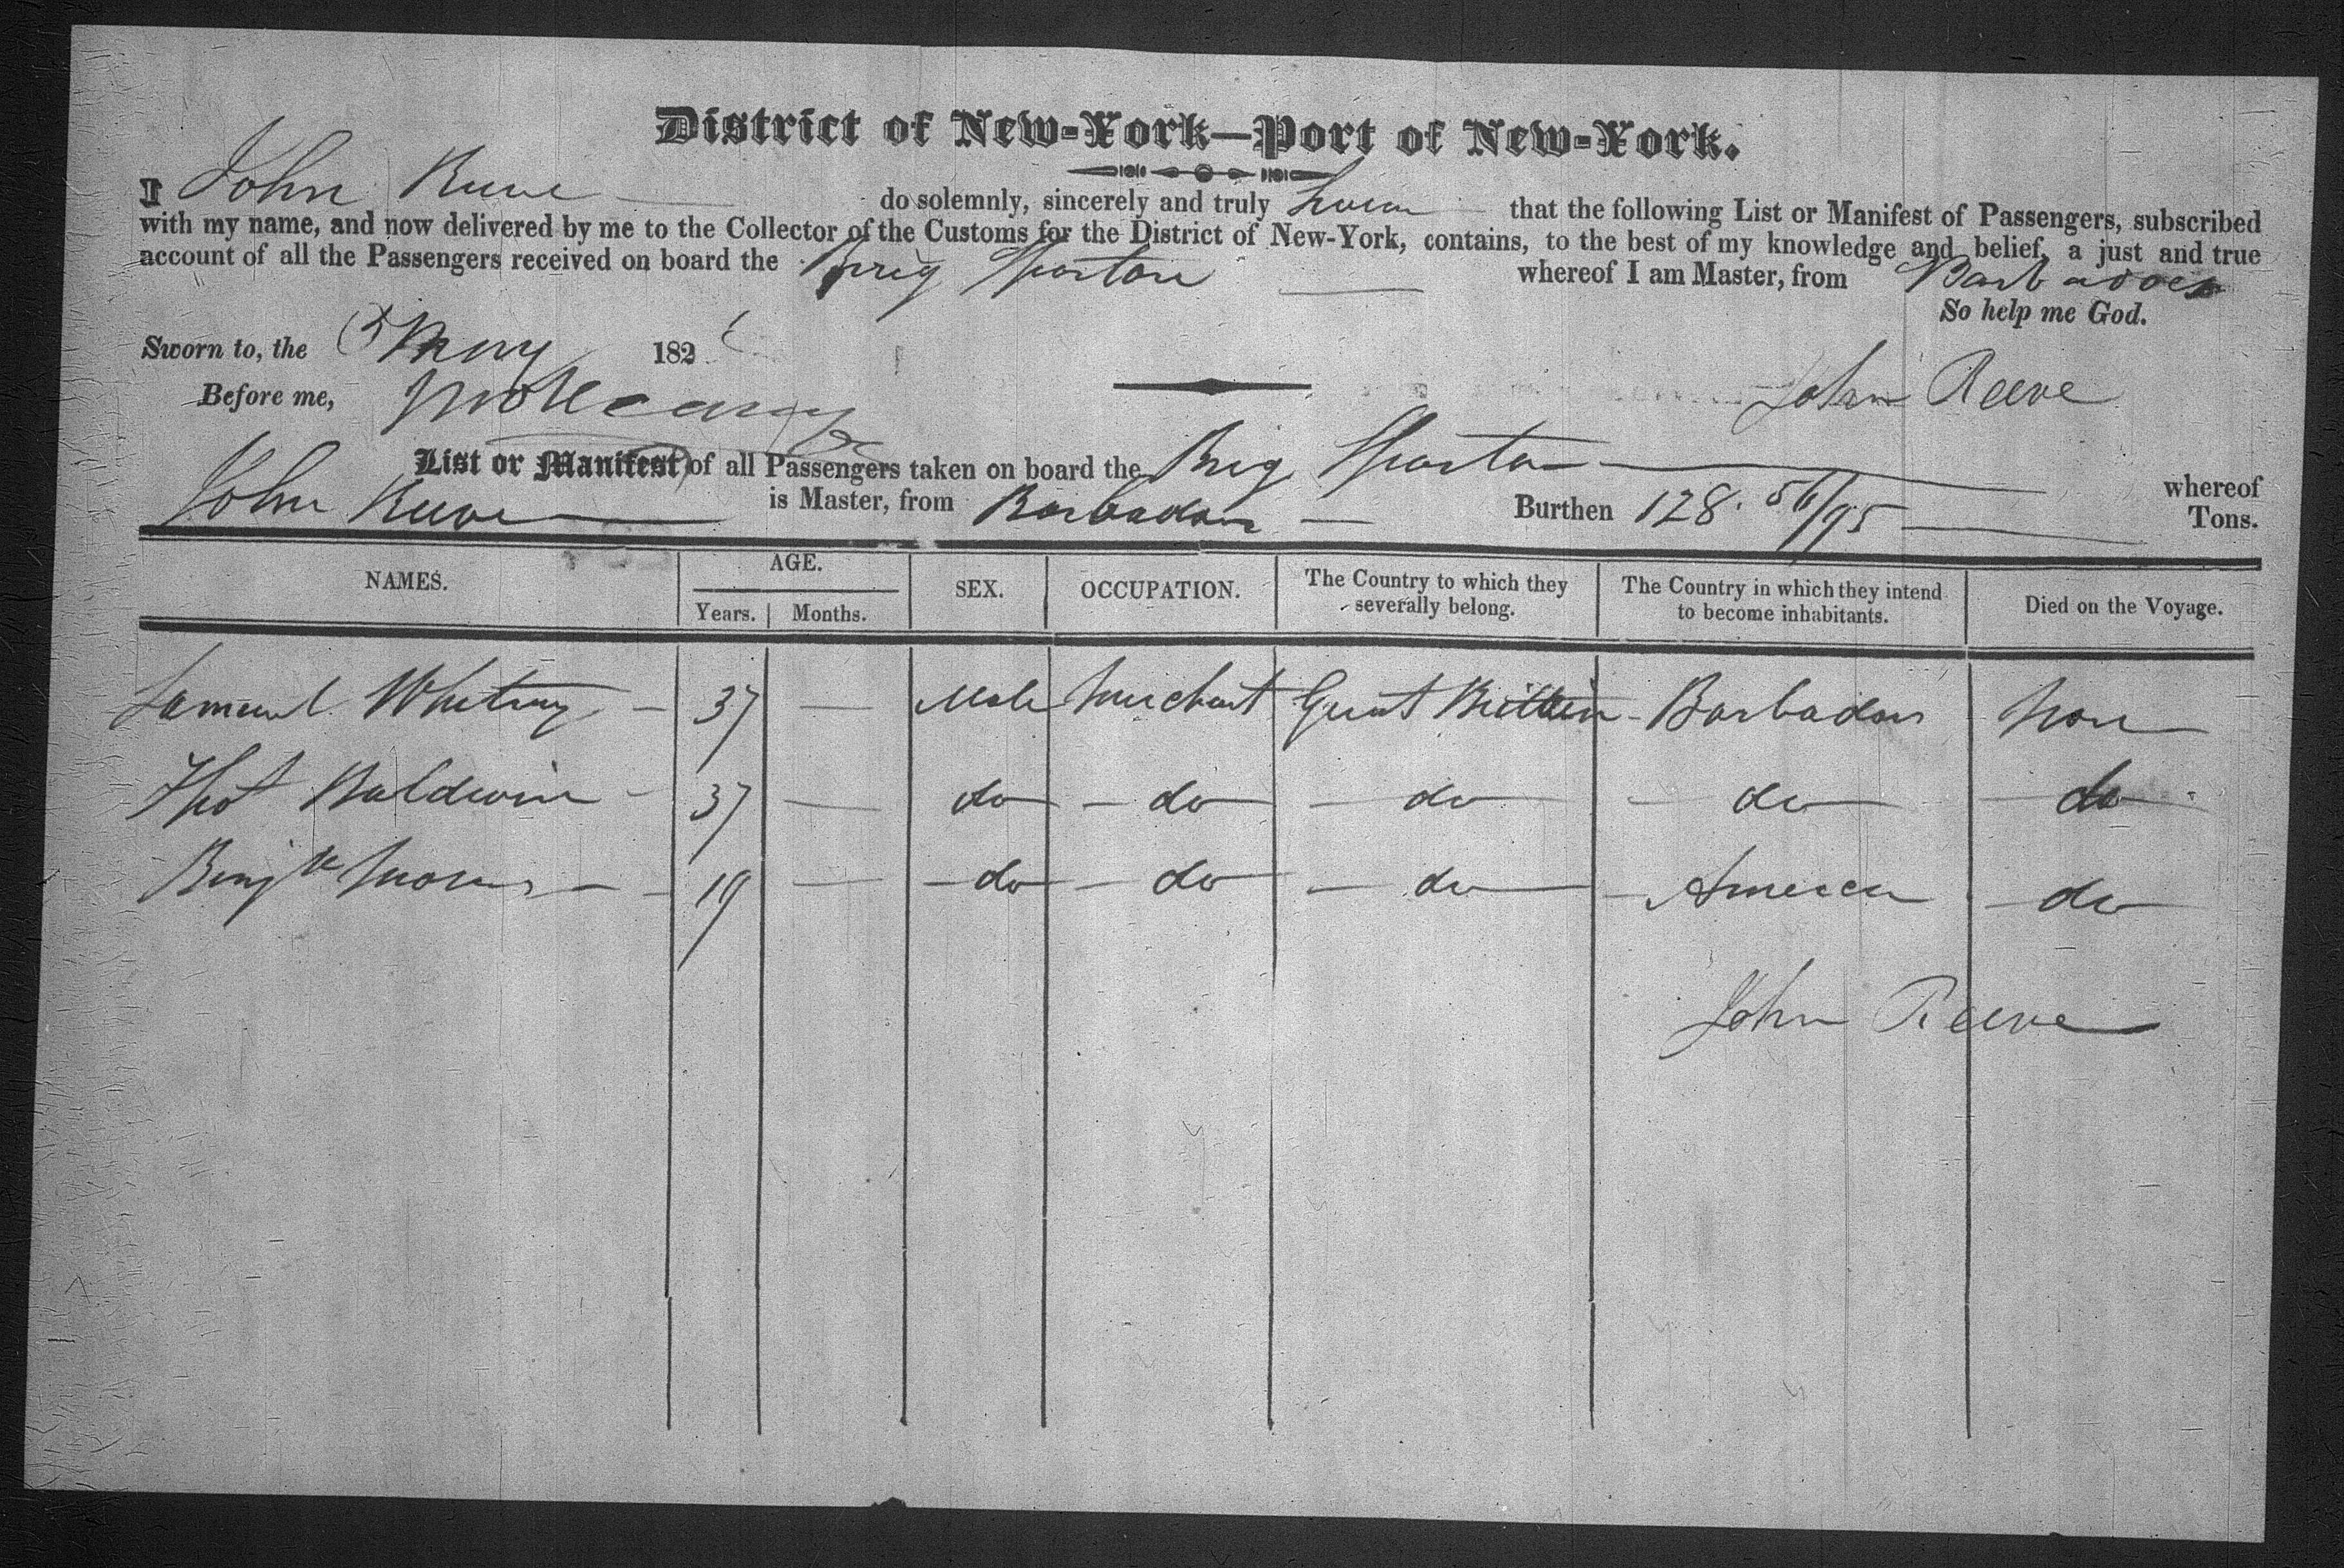 District of New-York—Port of New-York.
I John Reeve do solemnly, sincerely and truly swear that the following List or Manifest of Passengers, subscribed
with my name, and now delivered by me to the Collector of the Customs for the District of New-York, contains, to the best of my knowledge and belief, a just and true
account of all the Passengers received on board the Brig Spartan whereof I am Master, from Barbadoes
So help me God.
Sworn to, the May 182
Before me,
John Reeve
List or Manifest of all Passengers taken on board the Brig Spartan whereof
John Reeve is Master, from Barbadoes Burthen 128 56/95 Tons.
NAMES. AGE. SEX. OCCUPATION. The Country to which they severally belong. The Country in which they intend to become inhabitants. Died on the Voyage.
Years. Months.
Samuel Whitney — 37 — Male Merchant Great Brittain - Barbadoes None
Thos Baldwin - 37 — do - do - do - do - do
Benjn — 19 — do - do - do - America - do
John Reeve